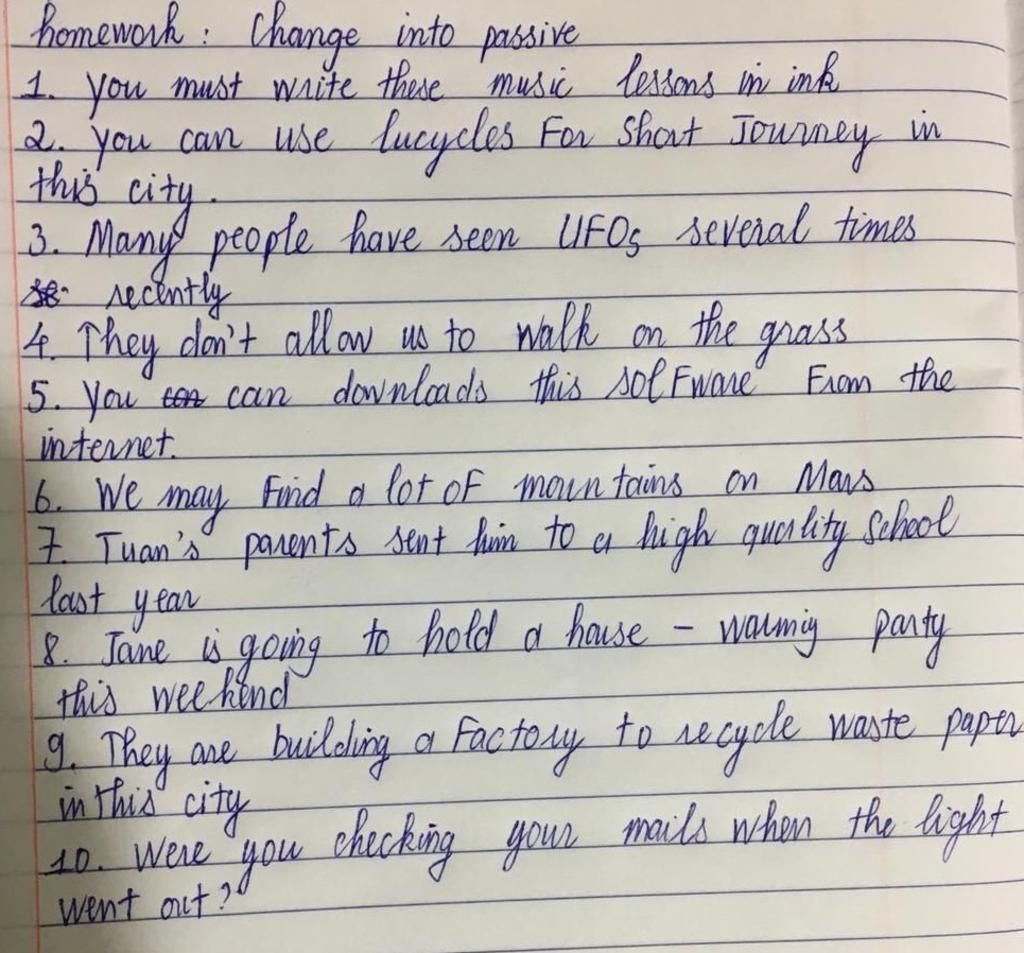 homework : Change into passive
1. You must write these music lessons in ink
2. you can use lucycles For Short Journey in
this city.
3. Many people have seen UFOs several times
recently
4. They don't allow us to walk on the grass
5. You can downloads this solFware From the
internet.
6. We may Find a lot oF mountains on Mars
7. Tuan's parents sent him to a high quality School
last year
8. Jane is going to hold a house - warmig party
this weekend
9. They are building a Factory to recycle waste paper
in this city
10. Were you checking your mails when the light
went out?